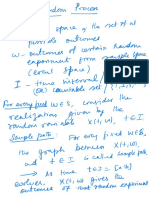 Random Process
space of the set of all
possible outcomes
ω - outcomes of certain random
experiment from sample space
(event space)
I - time interval
(or) countable set
For every fixed ω∈S, consider the
realization given by the
random variable X(t,ω), t∈I
Sample path: For every fixed ω∈S,
the graph between X(t,ω)
and t∈I is called sample path
→ As time t∈I = [a,b]
evolves, X(t,ω) gives the
outcomes of that random experiment